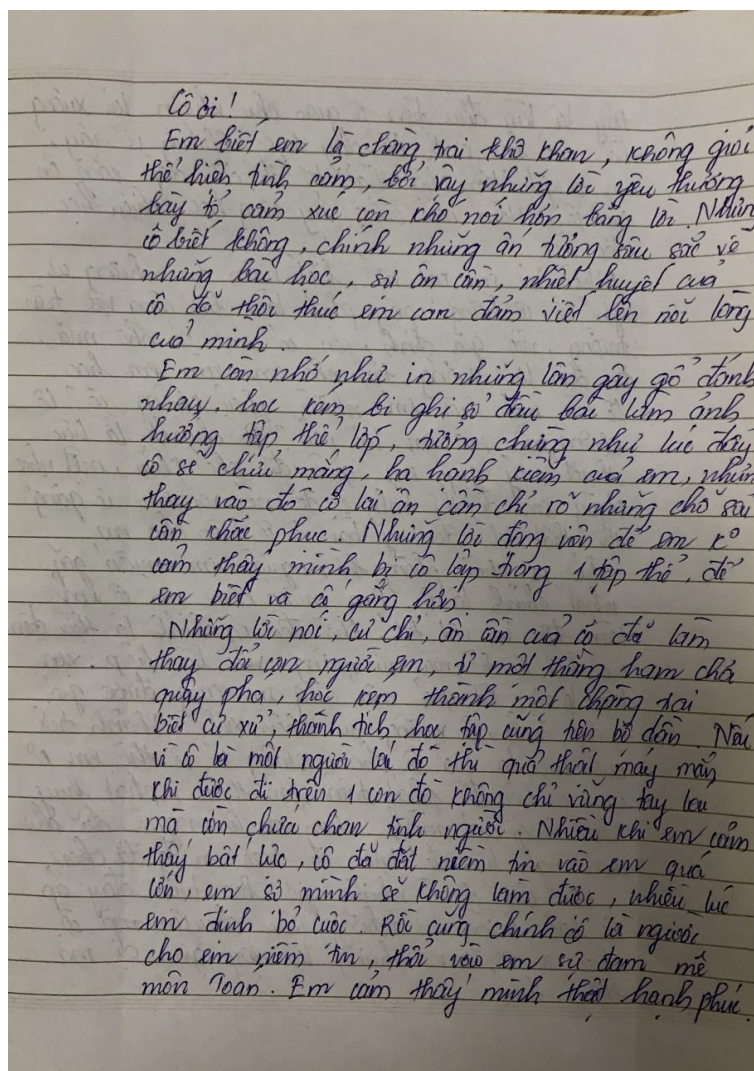 Cô ơi!
Em biết em là chàng trai khô khan, không giỏi
thể hiện tình cảm, bởi vậy những lời yêu thương
bày tỏ cảm xúc còn khó nói hơn bằng lời. Nhưng
cô biết không, chính những ấn tượng sâu sắc về
những bài học, sự ân cần, nhiệt huyết của
cô đã thôi thúc em can đảm viết lên nỗi lòng
của mình.
Em còn nhớ như in những lần gây gổ đánh
nhau, học kém bị ghi sổ đầu bài làm ảnh
hưởng tập thể lớp, tưởng chừng như lúc đấy
cô sẽ chửi mắng, hạ hạnh kiểm của em, nhưn
thay vào đó cô lại ân cần chỉ rõ những chỗ sai
cần khắc phục. Những lời động viên để em k°
cảm thấy mình bị cô lập trong 1 tập thể, để
em biết và cố gắng hơn.
Những lời nói, cử chỉ, ân cần của cô đã làm
thay đổi con người em, từ một thằng ham chơi
quậy phá, học kém thành một chàng trai
biết cư xử, thành tích học tập cũng tiến bộ dần. Nếu
ví cô là một người lái đò thì quả thật may mắn
khi được đi trên 1 con đò không chỉ vững tay lái
mà còn chứa chan tình người. Nhiều khi em cảm
thấy bất lực, cô đã đặt niềm tin vào em quá
lớn, em sợ mình sẽ không làm được, nhiều lúc
em định bỏ cuộc. Rồi cũng chính cô là người
cho em niềm tin, thổi vào em sự đam mê
môn Toán. Em cảm thấy mình thật hạnh phúc.